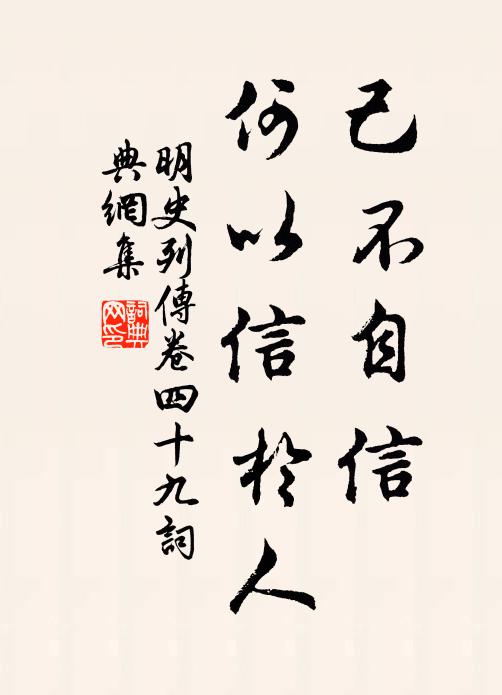 己不自信
何以信於人
明史列傳卷四十九詞
典網集
詞典网印